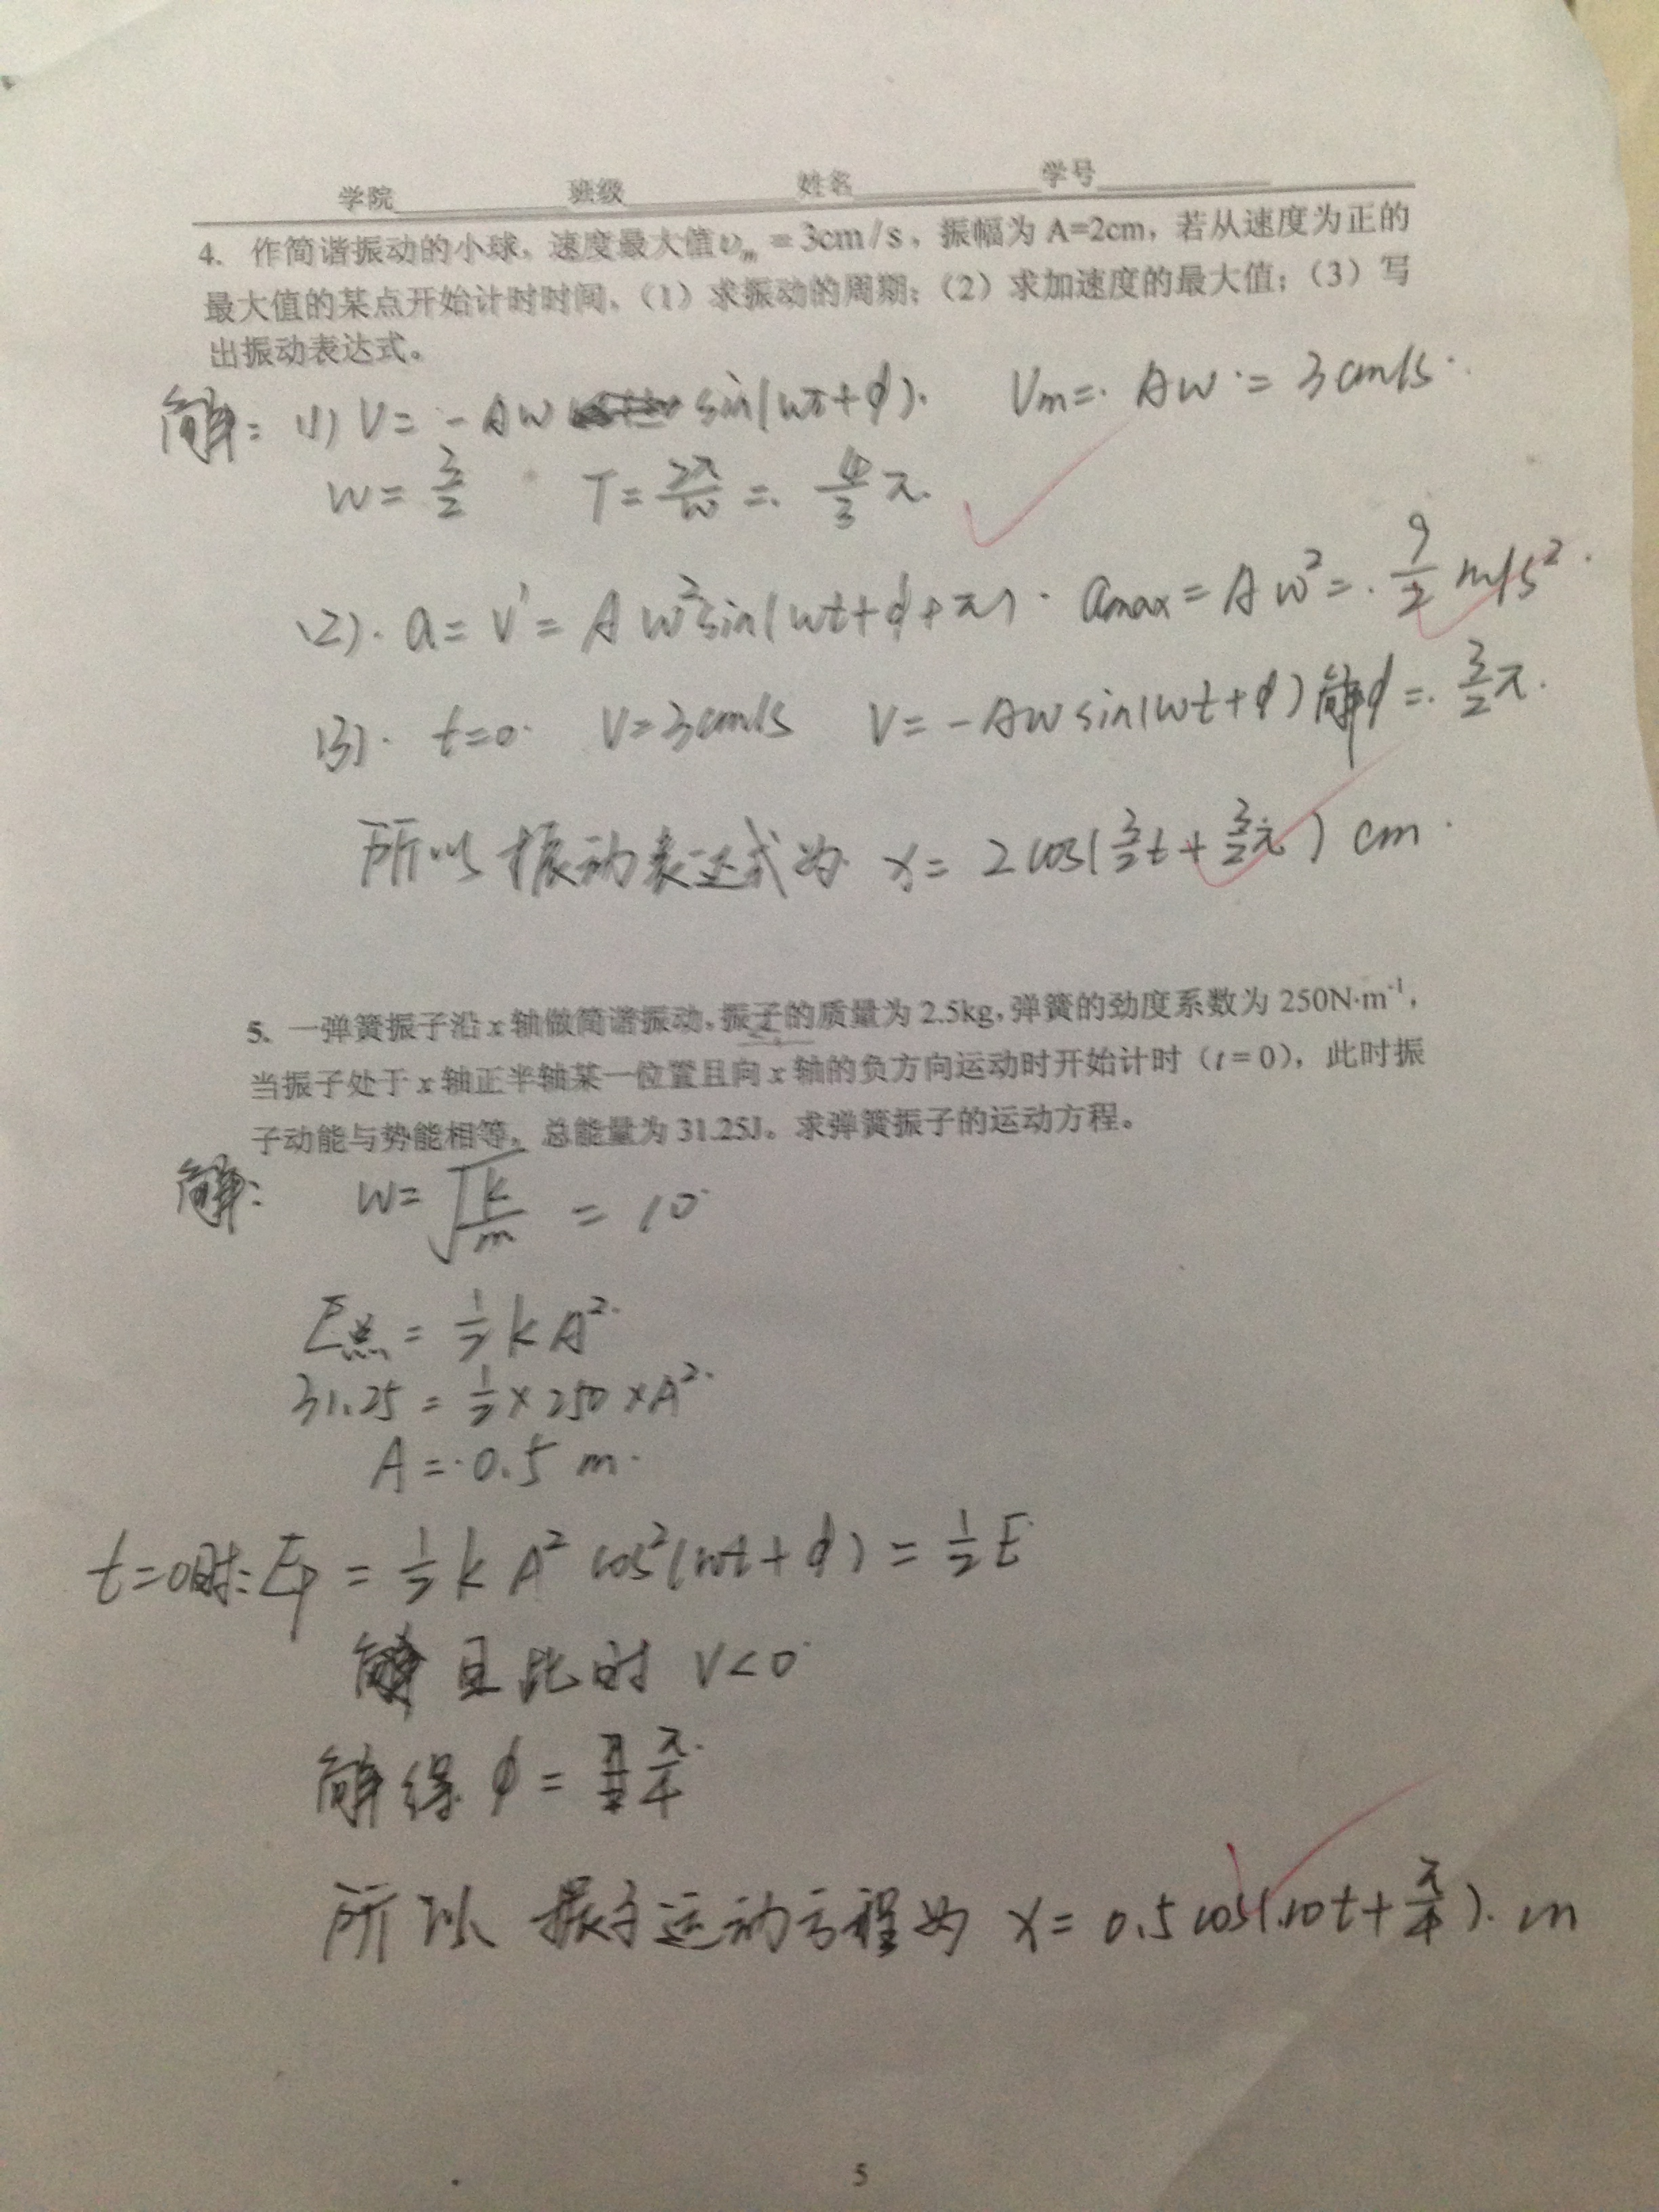 学院 班级 姓名 学号
4、作简谐振动的小球，速度最大值υm = 3cm/s，振幅为 A=2cm，若从速度为正的
最大值的某点开始计时时间，（1）求振动的周期；（2）求加速度的最大值；（3）写
出振动表达式。
解：(1) V = -Aw sin(wt+φ). Vm = Aw = 3cm/s.
w = 3/2 T = 2π/w = 4/3 π.
(2). a = v' = Aw²sin(wt+φ+π). amax = Aw² = 9/2 m/s².
(3). t=0. V=3cm/s V = -Aw sin(wt+φ) 解φ = 3/2 π.
所以振动表达式为 x = 2cos(3/2 t + 3/2 π) cm.
5、一弹簧振子沿 x 轴做简谐振动，振子的质量为 2.5kg，弹簧的劲度系数为 250N·m⁻¹，
当振子处于 x 轴正半轴某一位置且向 x 轴的负方向运动时开始计时（t = 0），此时振
子动能与势能相等，总能量为 31.25J。求弹簧振子的运动方程。
解： w = √(k/m) = 10
E总 = 1/2 kA².
31.25 = 1/2 × 250 × A².
A = 0.5 m.
t=0时：Ep = 1/2 kA² cos²(wt+φ) = 1/2 E
且此时 V<0
解得 φ = π/4
所以 振子运动方程为 x = 0.5cos(10t + π/4). m
5